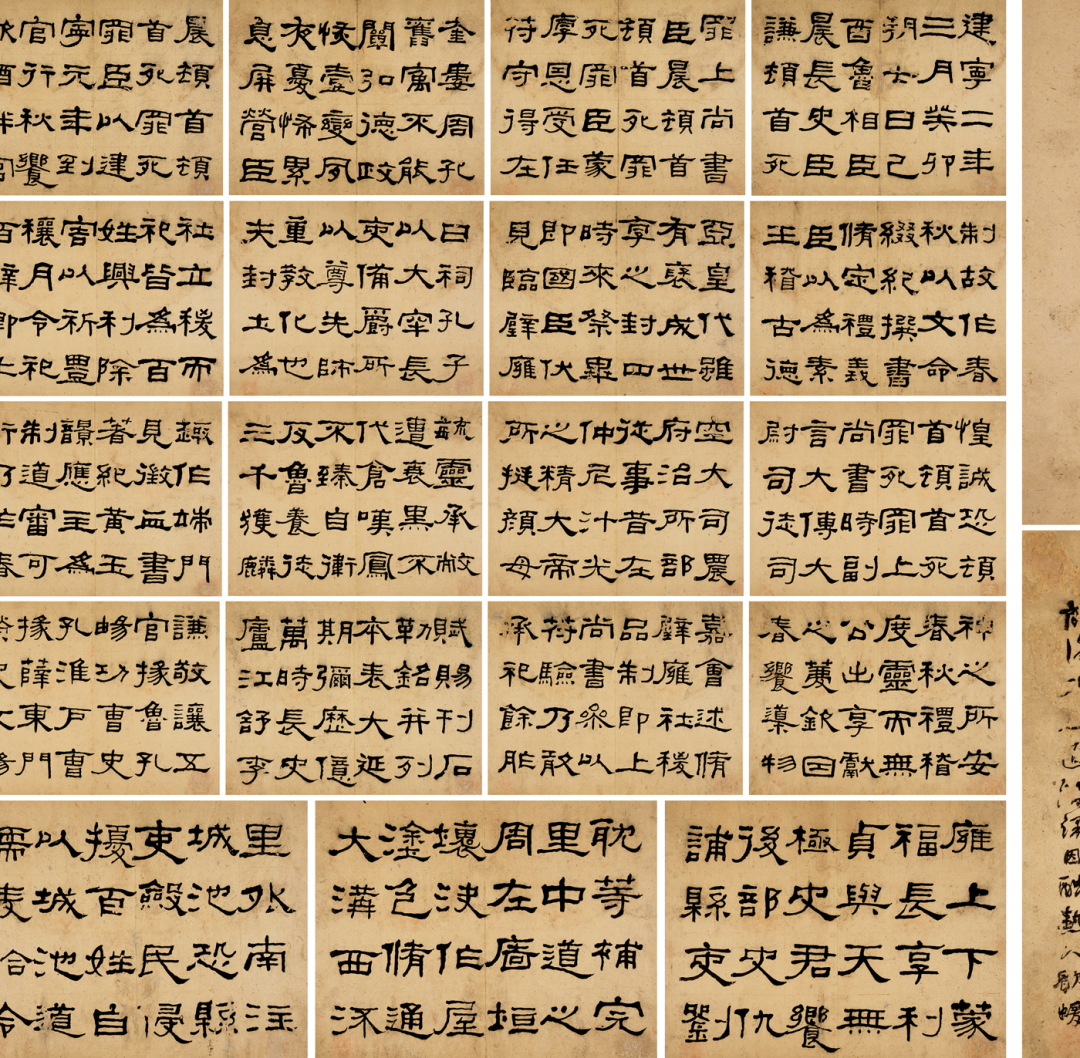 建寧二年
三月癸卯
朔七日己
酉魯相臣
晨長史臣
謙頓首死
罪上尚書
臣晨頓首
頓首死罪
死罪臣蒙
厚恩受任
符守得在
奎婁周孔
舊寓不能
闡弘德政
恢壹變夙
夜憂怖累
息屏營臣
晨頓首頓
首死罪死
罪臣以建
寧元年到
官行秋饗
制故作春
秋以文命
綴紀撰書
脩定禮義
臣以為素
王稽古德
亞皇代雖
有褒成世
享之封四
時來祭畢
即國臣伏
見臨璧廱
日祠孔子
以大宰長
吏備爵所
以尊先師
重教化也
夫封土為
社立稷而
祀皆為百
姓興利除
害以祈豐
穰月令祀
惶誠恐頓
首頓首死
罪死罪上
尚書時副
言大傅大
尉司徒司
空大司農
府治所部
從事昔在
仲尼汁光
之精大帝
所挺顏母
毓靈承敝
遭衰黑不
代倉嘆鳳
不臻自衛
反魯養徒
三千獲麟
趣作端門
見徵血書
著紀黃玉
韻應主為
制道審可
神之所安
春秋禮稽
度靈而無
公出享獻
之薦欽因
春饗導物
嘉會述脩
璧廱社稷
品制即上
尚書參以
符驗乃敢
承祀餘胙
賦賜刊石
勒銘并列
本表大延
期彌歷億
萬時長史
廬江舒李
謙敬讓五
官掾魯孔
暢功曹史
孔淮戶曹
掾薛東門
廱上下蒙
福長享利
貞與天無
極史君饗
後部史仇
誧縣吏劉
耽等補完
里中道之
周左廧垣
壞決作屋
塗色脩通
大溝西流
里外南注
城池恐縣
吏斂民侵
擾百姓自
以城池道